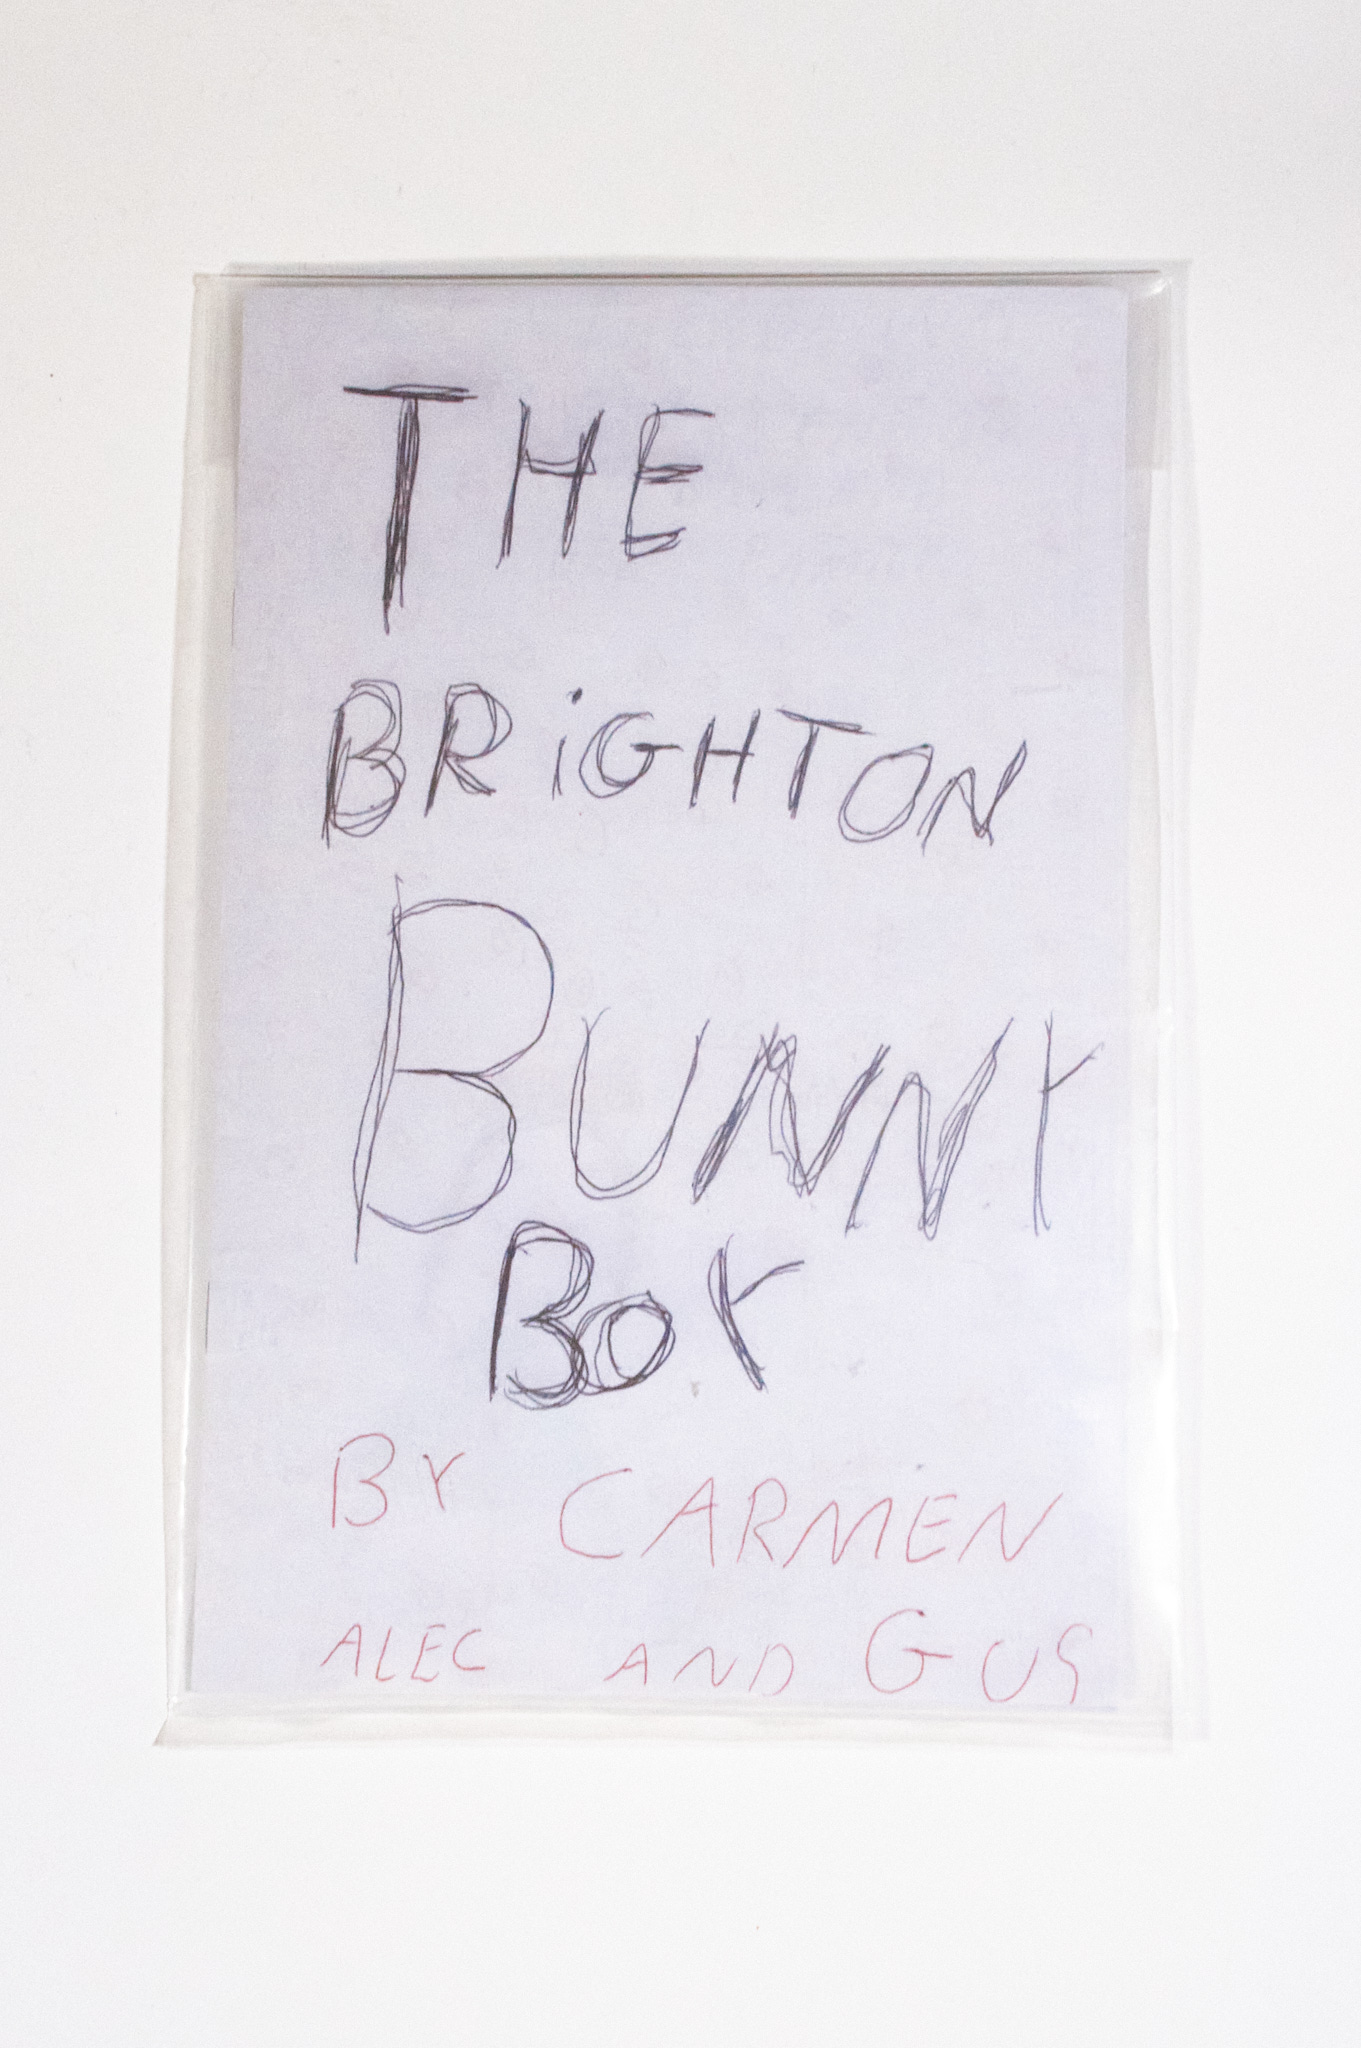 THE
BRiGHTON
BUNNY
BOY
BY CARMEN
ALEC AND GUS